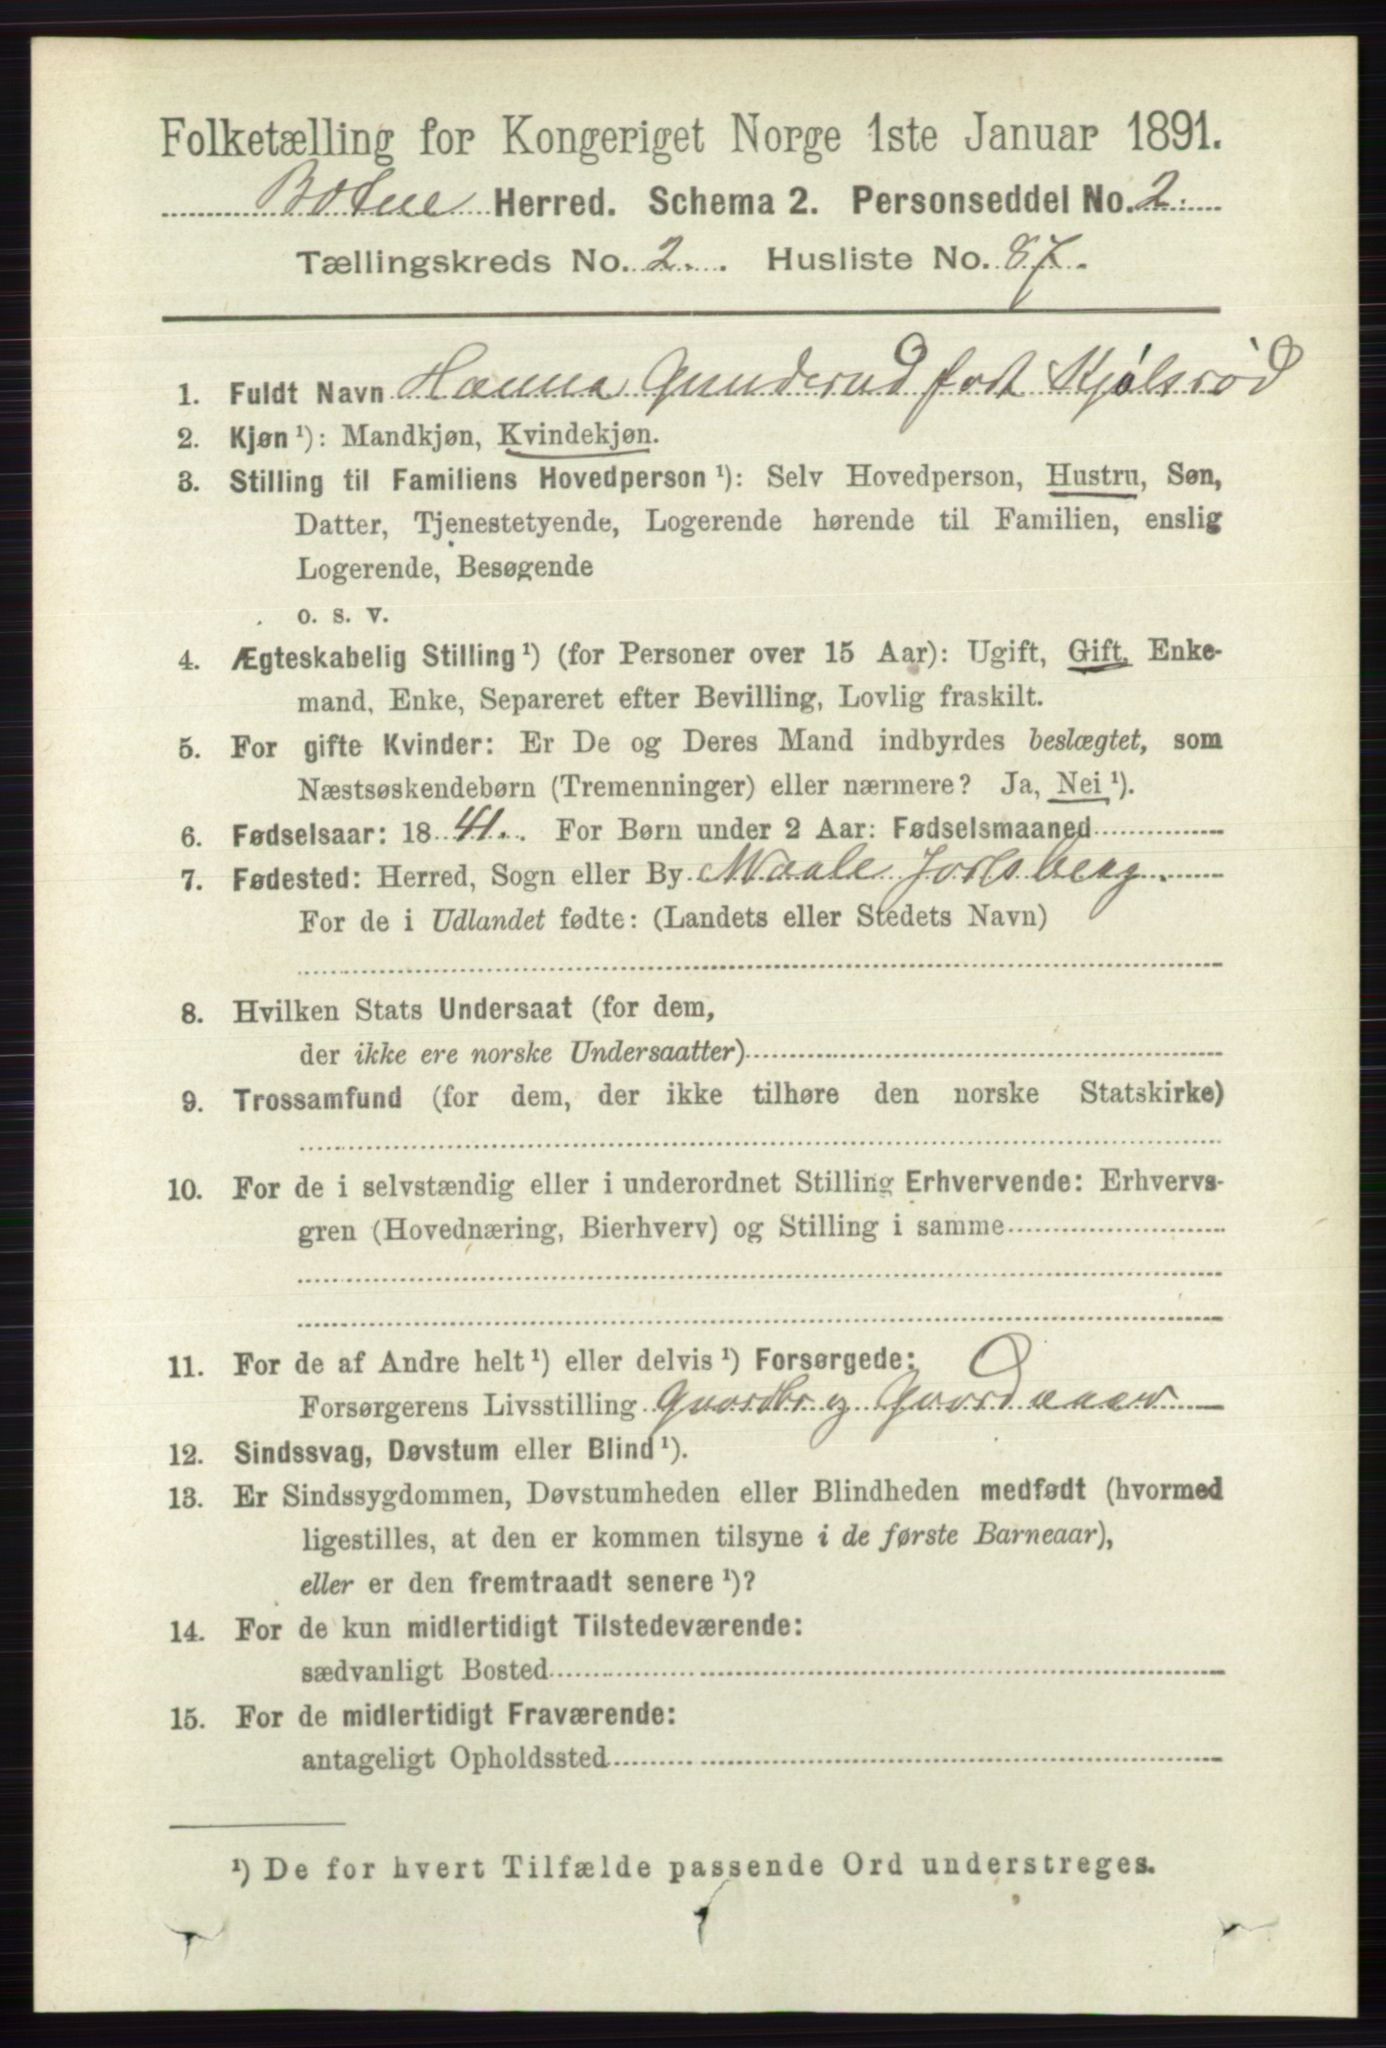 Folketælling for Kongeriget Norge 1ste Januar 1891.
Botne Herred. Schema 2. Personseddel No. 2.
Tællingskreds No. 2. Husliste No. 87.
1. Fuldt Navn Hanna Gunderud født Kjølsrød
2. Kjøn ¹): Mandkjøn, Kvindekjøn.
3. Stilling til Familiens Hovedperson ¹): Selv Hovedperson, Hustru, Søn,
Datter, Tjenestetyende, Logerende hørende til Familien, enslig
Logerende, Besøgende
o. s. v.
4. Ægteskabelig Stilling ¹) (for Personer over 15 Aar): Ugift, Gift, Enke-
mand, Enke, Separeret efter Bevilling, Lovlig fraskilt.
5. For gifte Kvinder: Er De og Deres Mand indbyrdes beslægtet, som
Næstsøskendebørn (Tremenninger) eller nærmere? Ja, Nei ¹).
6. Fødselsaar: 1841. For Børn under 2 Aar: Fødselsmaaned
7. Fødested: Herred, Sogn eller By Waale Jarlsberg.
For de i Udlandet fødte: (Landets eller Stedets Navn)
8. Hvilken Stats Undersaat (for dem,
der ikke ere norske Undersaatter)
9. Trossamfund (for dem, der ikke tilhøre den norske Statskirke)
10. For de i selvstændig eller i underordnet Stilling Erhvervende: Erhvervs-
gren (Hovednæring, Bierhverv) og Stilling i samme
11. For de af Andre helt ¹) eller delvis ¹) Forsørgede:
Forsørgerens Livsstilling Gaardbr og
12. Sindssvag, Døvstum eller Blind ¹).
13. Er Sindssygdommen, Døvstumheden eller Blindheden medfødt (hvormed
ligestilles, at den er kommen tilsyne i de første Barneaar),
eller er den fremtraadt senere ¹)?
14. For de kun midlertidigt Tilstedeværende:
sædvanligt Bosted
15. For de midlertidigt Fraværende:
antageligt Opholdssted
¹) De for hvert Tilfælde passende Ord understreges.